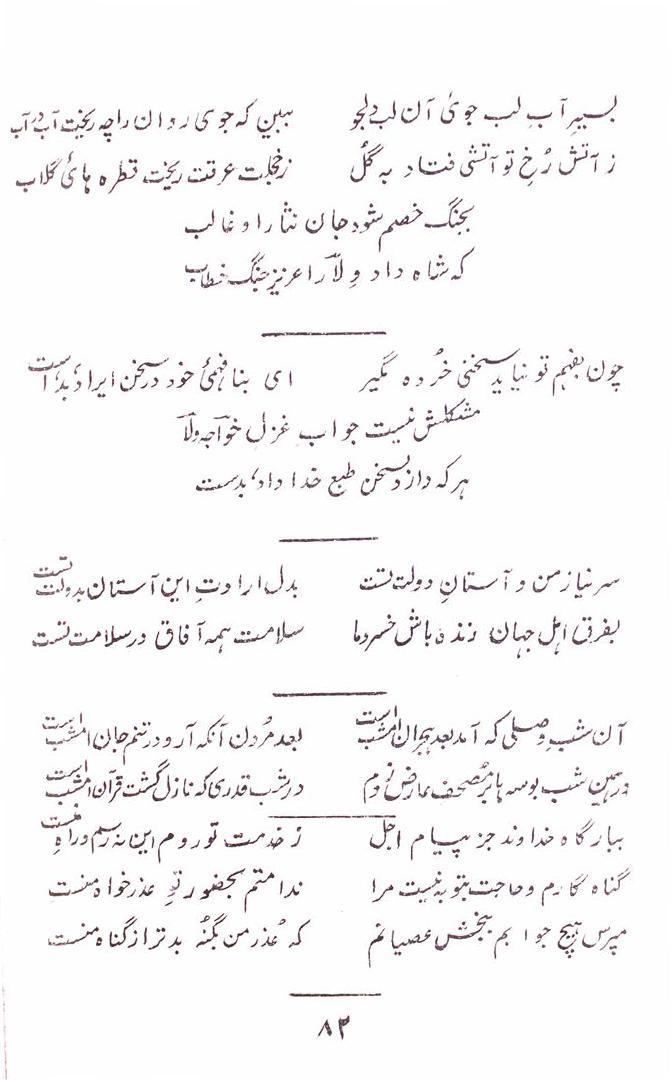 بسیرِ آبِ لب جوئ آن لب دلجو ببین که جوی روان را چه ریخت آب در آب
ز آتش رُخِ تو آتشی فتاد به گُل ز خجلت عرقت ریخت قطره هائ گلاب
بجنگ خصم شود جان نثار او غالب
که شاه داد وِلاؔ را عزیز جنگ خطاب
چون بفهم تو نیاید سخنی خُرده مگیر ای بنا فهمئ خود در سخن ایراد بدست
مشکلش نیست جواب غزل خواجه ولاؔ
هر که دارد بسخن طبع خدا داد بدست
سر نیاز من و آستانِ دولت تست بدل ارادتِ این آستان بدولت تست
بفرق اهل جهان زنده باش خسرو ما سلامت همه آفاق در سلامت تست
آن شبِ وصلی که آمد بعد هجران امشب است بعد مُردن آنکه آرد در تنم جان امشب است
در همین شب بوسه ها بر مُصحف عارض زدم در شب قدری که نازل گشت قرآن امشب است
ببارگاه خداوند جز پیام اجل ز خدمت تو روم این نه رسم و راهِ منست
گناه گارم و حاجت بتوبه نیست مرا ندامتم بحضور تو عذر خواه منست
مپرس هیچ جوابم ببخش عصیانم که عُذر من بگنُه بدتر از گناه منست
۸۲